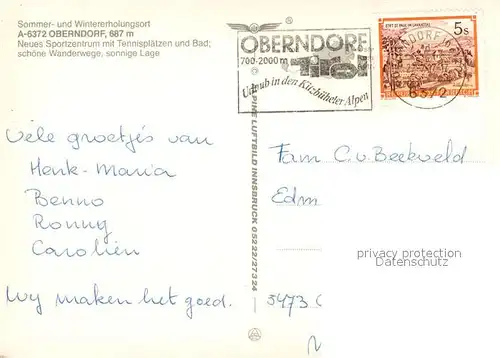 Sommer- und Wintererholungsort
A-6372 OBERNDORF, 687 m
Neues Sportzentrum mit Tennisplätzen und Bad;
schöne Wanderwege, sonnige Lage
OBERNDORF
700-2000 m TIROL
Urlaub in den Kitzbüheler Alpen
STIFT ST. PAUL IM LAVANTTAL
5 S
6372
Vele groetjes van
Henk-Maria
Benno
Ronny
Carolien
Wy maken het goed.
ALPINE LUFTBILD INNSBRUCK 05222/27324
Fam C.v. Beekveld
Edm
5473
privacy protection
Datenschutz